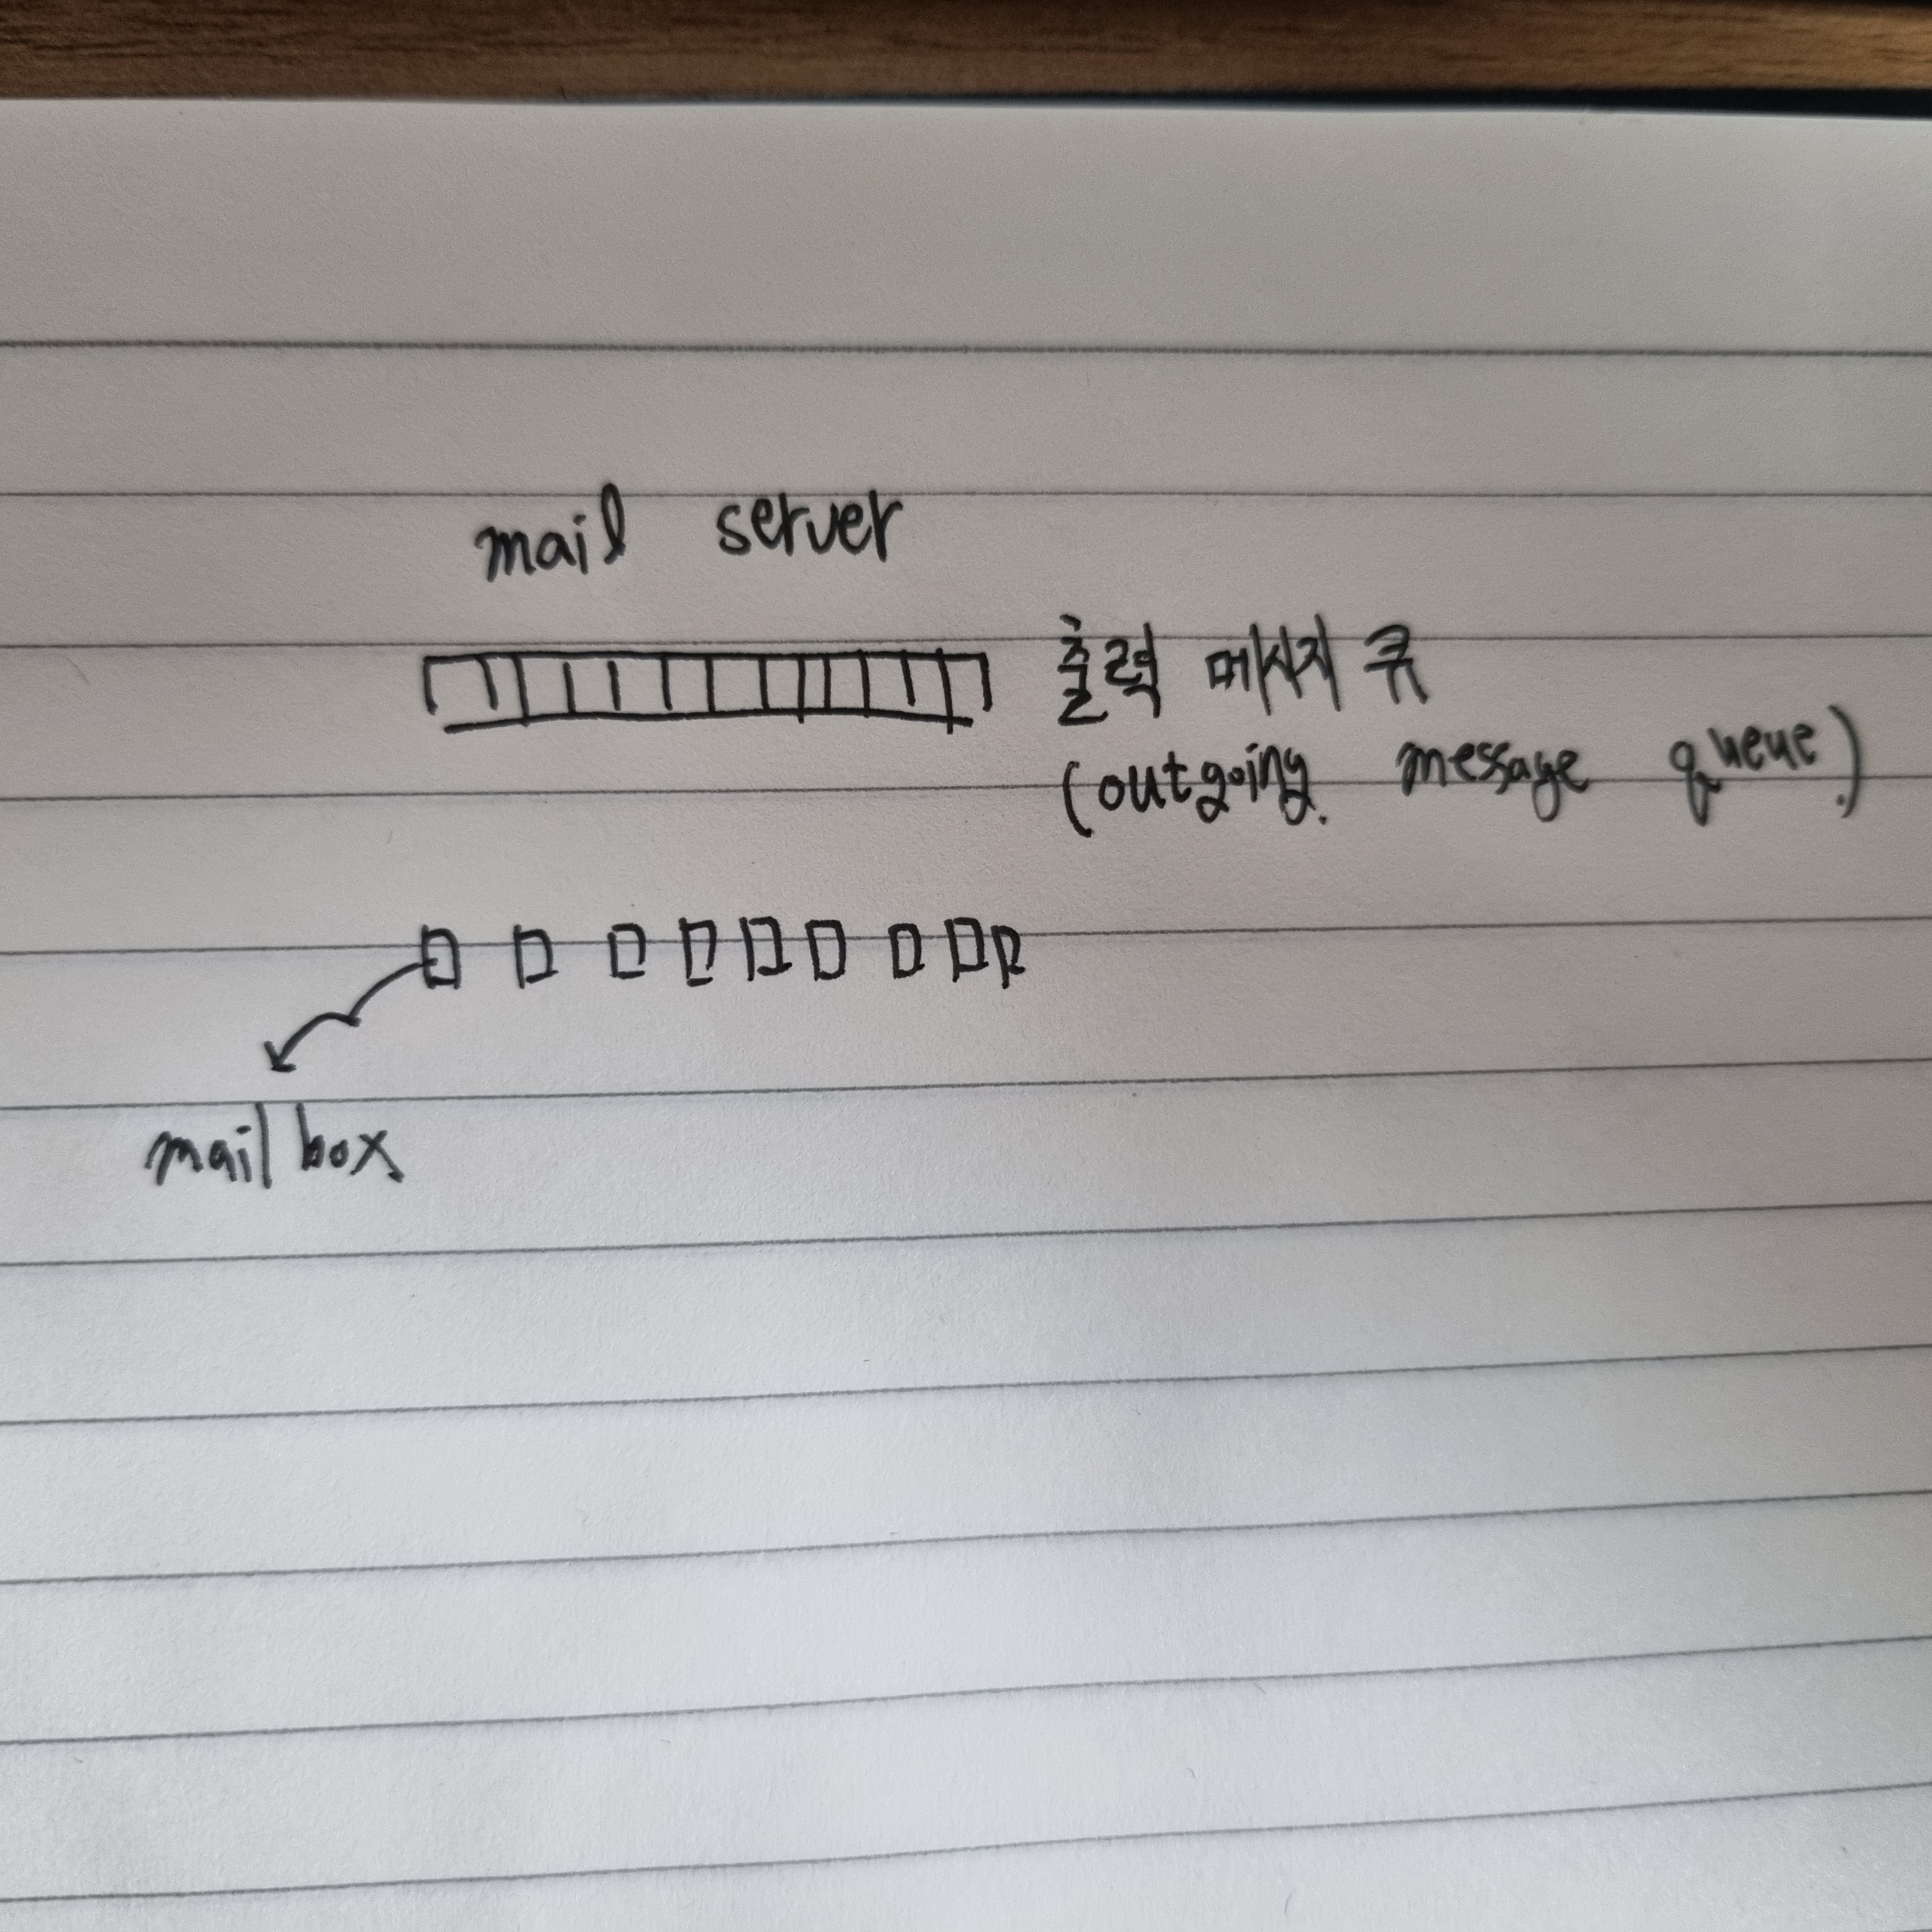 mail server
출력 메시지 큐
(outgoing message queue)
mail box